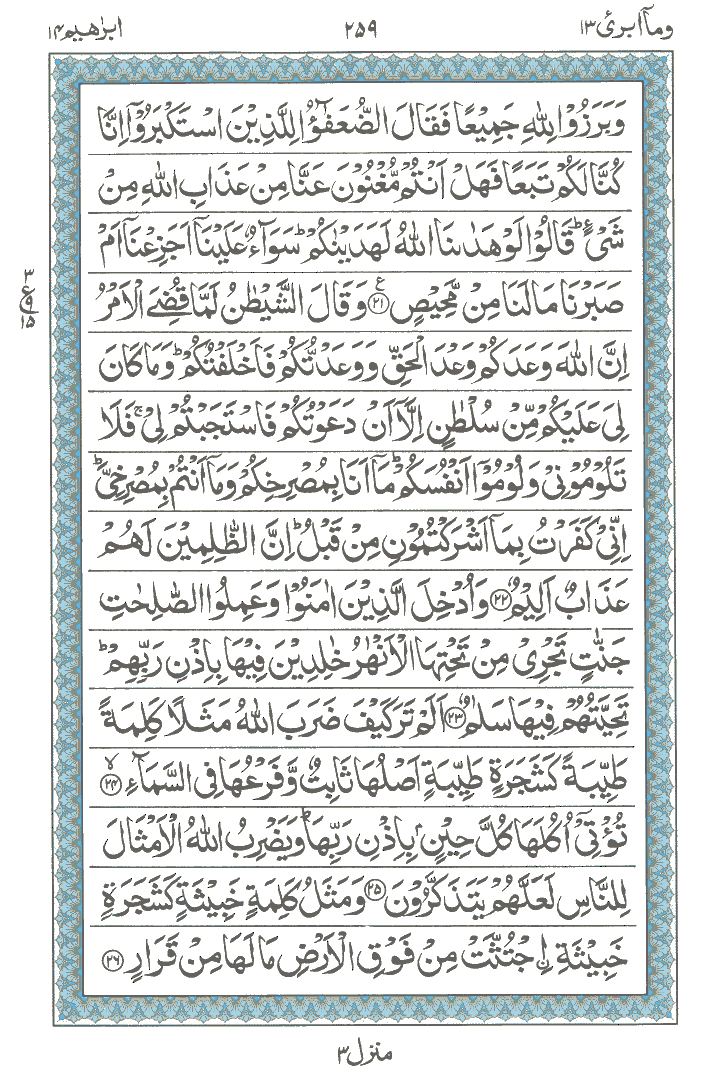 ابرٰهيم ١٤ ٢٥٩ وماۤ ابرئ ١٣
وَبَرَزُوْا لِلّٰهِ جَمِيْعًا فَقَالَ الضُّعَفٰٓؤُا لِلَّذِيْنَ اسْتَكْبَرُوْٓا اِنَّا
كُنَّا لَكُمْ تَبَعًا فَهَلْ اَنْتُمْ مُّغْنُوْنَ عَنَّا مِنْ عَذَابِ اللّٰهِ مِنْ
شَيْءٍ ؕ قَالُوْا لَوْ هَدٰىنَا اللّٰهُ لَهَدَيْنٰكُمْ ؕ سَوَآءٌ عَلَيْنَاۤ اَجَزِعْنَاۤ اَمْ
صَبَرْنَا مَا لَنَا مِنْ مَّحِيْصٍ ﴿٢١﴾ ع وَقَالَ الشَّيْطٰنُ لَمَّا قُضِيَ الْاَمْرُ
٣
ع ٩
١٥
اِنَّ اللّٰهَ وَعَدَكُمْ وَعْدَ الْحَقِّ وَوَعَدْتُّكُمْ فَاَخْلَفْتُكُمْ ؕ وَمَا كَانَ
لِيَ عَلَيْكُمْ مِّنْ سُلْطٰنٍ اِلَّاۤ اَنْ دَعَوْتُكُمْ فَاسْتَجَبْتُمْ لِيْ ۚ فَلَا
تَلُوْمُوْنِيْ وَلُوْمُوْۤا اَنْفُسَكُمْ ؕ مَاۤ اَنَا بِمُصْرِخِكُمْ وَمَاۤ اَنْتُمْ بِمُصْرِخِيَّ ؕ
اِنِّيْ كَفَرْتُ بِمَاۤ اَشْرَكْتُمُوْنِ مِنْ قَبْلُ ؕ اِنَّ الظّٰلِمِيْنَ لَهُمْ
عَذَابٌ اَلِيْمٌ ﴿٢٢﴾ وَاُدْخِلَ الَّذِيْنَ اٰمَنُوْا وَعَمِلُوا الصّٰلِحٰتِ
جَنّٰتٍ تَجْرِيْ مِنْ تَحْتِهَا الْاَنْهٰرُ خٰلِدِيْنَ فِيْهَا بِاِذْنِ رَبِّهِمْ ؕ
تَحِيَّتُهُمْ فِيْهَا سَلٰمٌ ﴿٢٣﴾ اَلَمْ تَرَ كَيْفَ ضَرَبَ اللّٰهُ مَثَلًا كَلِمَةً
طَيِّبَةً كَشَجَرَةٍ طَيِّبَةٍ اَصْلُهَا ثَابِتٌ وَّفَرْعُهَا فِي السَّمَآءِ ﴿٢٤﴾ ۙ
تُؤْتِيْۤ اُكُلَهَا كُلَّ حِيْنٍۭ بِاِذْنِ رَبِّهَا ؕ وَيَضْرِبُ اللّٰهُ الْاَمْثَالَ
لِلنَّاسِ لَعَلَّهُمْ يَتَذَكَّرُوْنَ ﴿٢٥﴾ وَمَثَلُ كَلِمَةٍ خَبِيْثَةٍ كَشَجَرَةٍ
خَبِيْثَةِ ِۨاجْتُثَّتْ مِنْ فَوْقِ الْاَرْضِ مَا لَهَا مِنْ قَرَارٍ ﴿٢٦﴾
منزل ٣